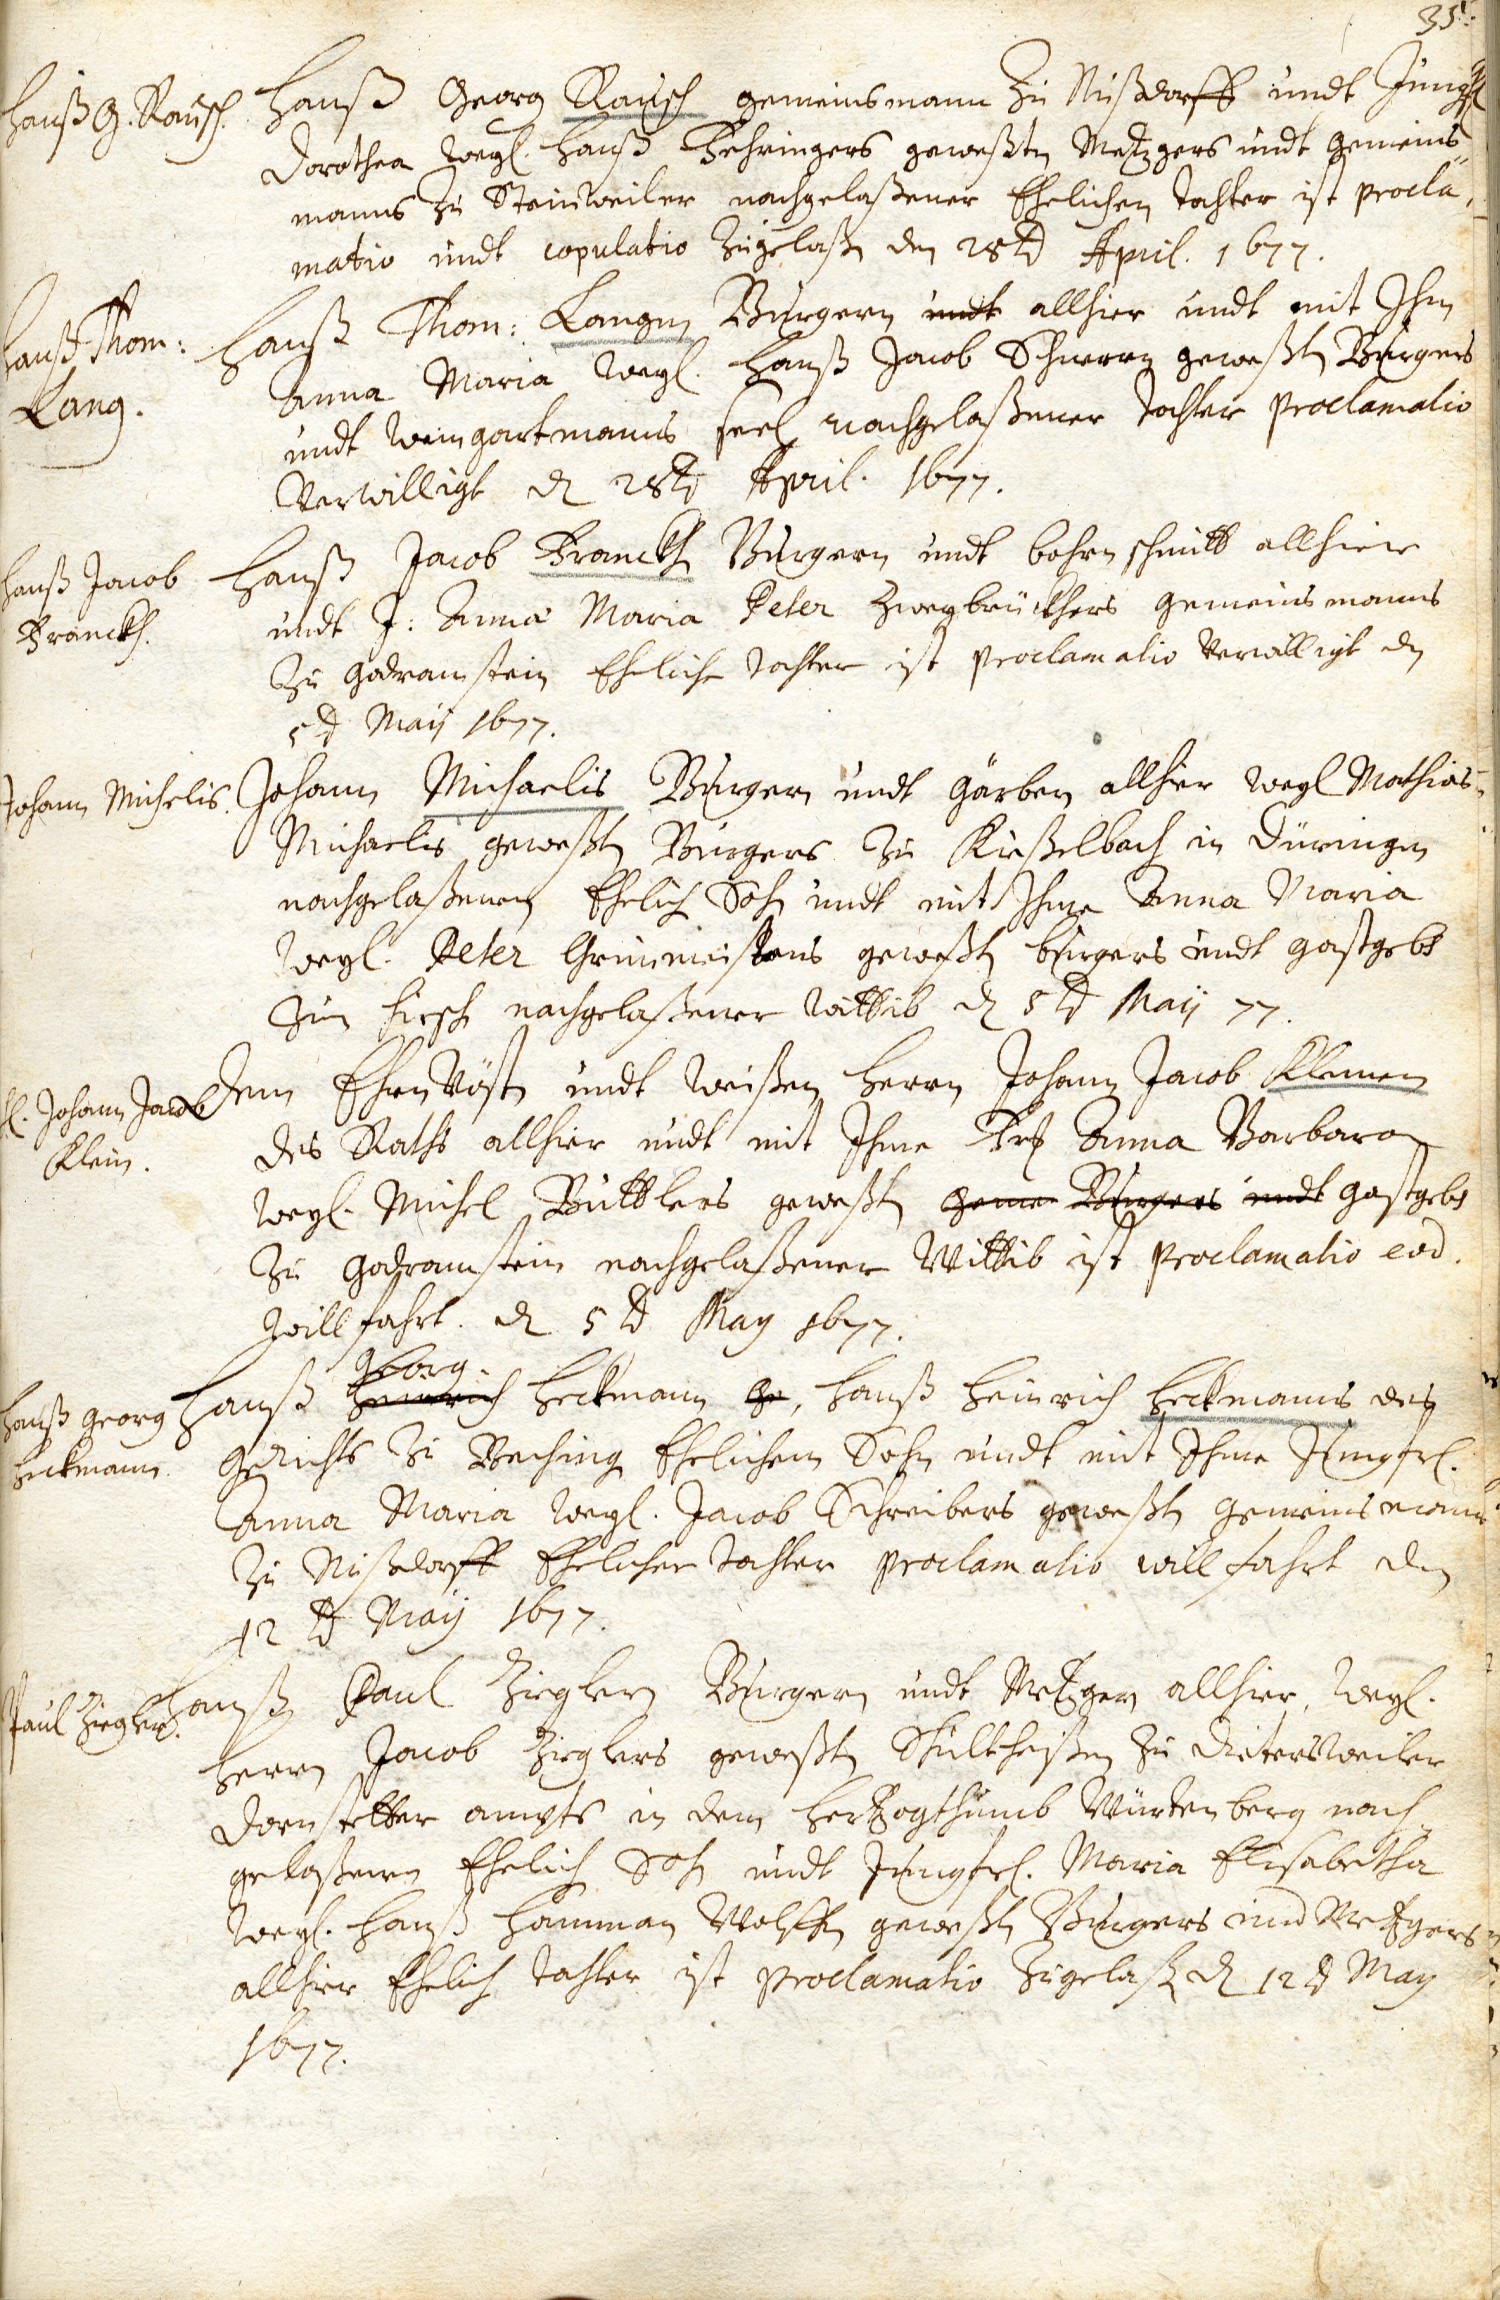 35.
Hanß G. Rausch.
Hanß Georg Rausch gemeinsmann Zu Nußdorff undt Jungf.
Dorothea Weyl. Hanß Behringers geweßtn Metzgers undt gemeins-
manns Zu Steinweiler nachgelaßener Ehelichen tochter ist procla-
matio undt copulatio Zugelaßn den 28td April. 1677.
Hanß Thom:
Lang.
Hanß Thom: Langen Burgern undt allhier undt mit Ihm
Anna Maria Weyl. Hanß Jacob Schweren geweßtn Burgers
undt weingartmanns seel nachgelaßener tochter proclamatio
Verwilligt d 28td April. 1677.
Hanß Jacob
Franckh.
Hanß Jacob Franckh Burgern undt bohrnschmitt allhier
undt J: Anna Maria Peter Zweybrückhers gemeinsmanns
Zu Godramstein Eheliche tochter ist proclamatio Verwilligt dn
5td Maij 1677.
Johann Michelis.
Johann Michaelis Burgern undt gärbern allhier weyl Mathias
Michaelis geweßtn Burgers Zu Kießelbach in Düringen
nachgelaßenen Ehelich Sohn undt mit Ihme Anna Maria
Weyl. Peter Grünmeisters geweßtn burgers undt gastgebs
Zum hirsch nachgelaßener wittib d 5td Maij 77.
H. Johann Jacob
Klein.
Dem Ehrnvösten undt weißen Herrn Johann Jacob Kleinen
des Raths allhier undt mit Ihme Fr. Anna Barbara
Weyl. Michel Büttlers geweßtn geme Burgers undt gastgebs
Zu Godramstein nachgelaßener Wittib ist proclamatio eod.
Willfahrt. d 5td May 1677.
Hanß Georg
Heckmann.
Georg.
Hanß Heinrich Heckmann Ge, Hanß Heinrich Heckmanns des
Gerichts Zu Beching Ehelichem Sohn undt mit Ihme Jungfrl.
Anna Maria Weyl. Jacob Schreibers geweßtn gemeinsmanns
Zu Nußdorff Ehelicher tochter proclamatio willfahrt den
12td Maij 1677.
Paul Ziegler.
Hanß Paul Zieglern Burgern undt Metzgern allhier, Weyl.
Herrn Jacob Zieglers geweßtn Schultheißen Zu Dieterßweiler
Dornstetter ampts in dem Hertzogthumb Würtenberg nach-
gelaßenen Ehelich Sohn undt Jungfrl. Maria Elisabetha
Weyl. Hanß Hamman Wolffen geweßtn Burgers und Metzgers
allhier Ehelich tochter ist proclamatio Zugelaßn d 12td May
1677.